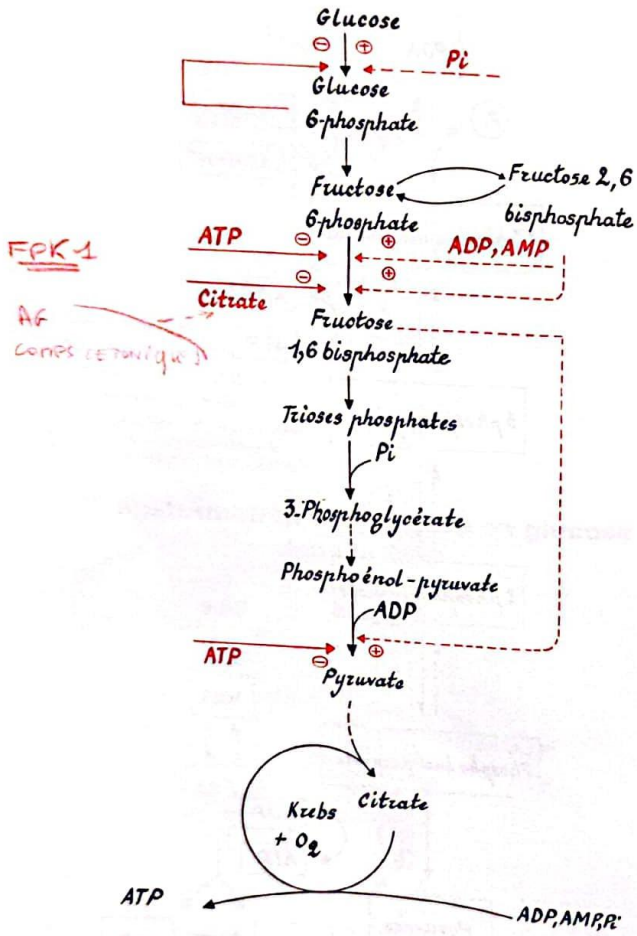 Glucose
⊖ ⊕
Pi
Glucose
6-phosphate
Fructose
6-phosphate
Fructose 2,6
bisphosphate
FPK1
ATP
⊖ ⊕
ADP, AMP
⊖ ⊕
Citrate
AG
corps cétoniques
Fructose
1,6 bisphosphate
Trioses phosphates
Pi
3-Phosphoglycérate
Phosphoénol-pyruvate
ADP
ATP
⊖ ⊕
Pyruvate
Citrate
Krebs
+ O2
ATP
ADP, AMP, Pi